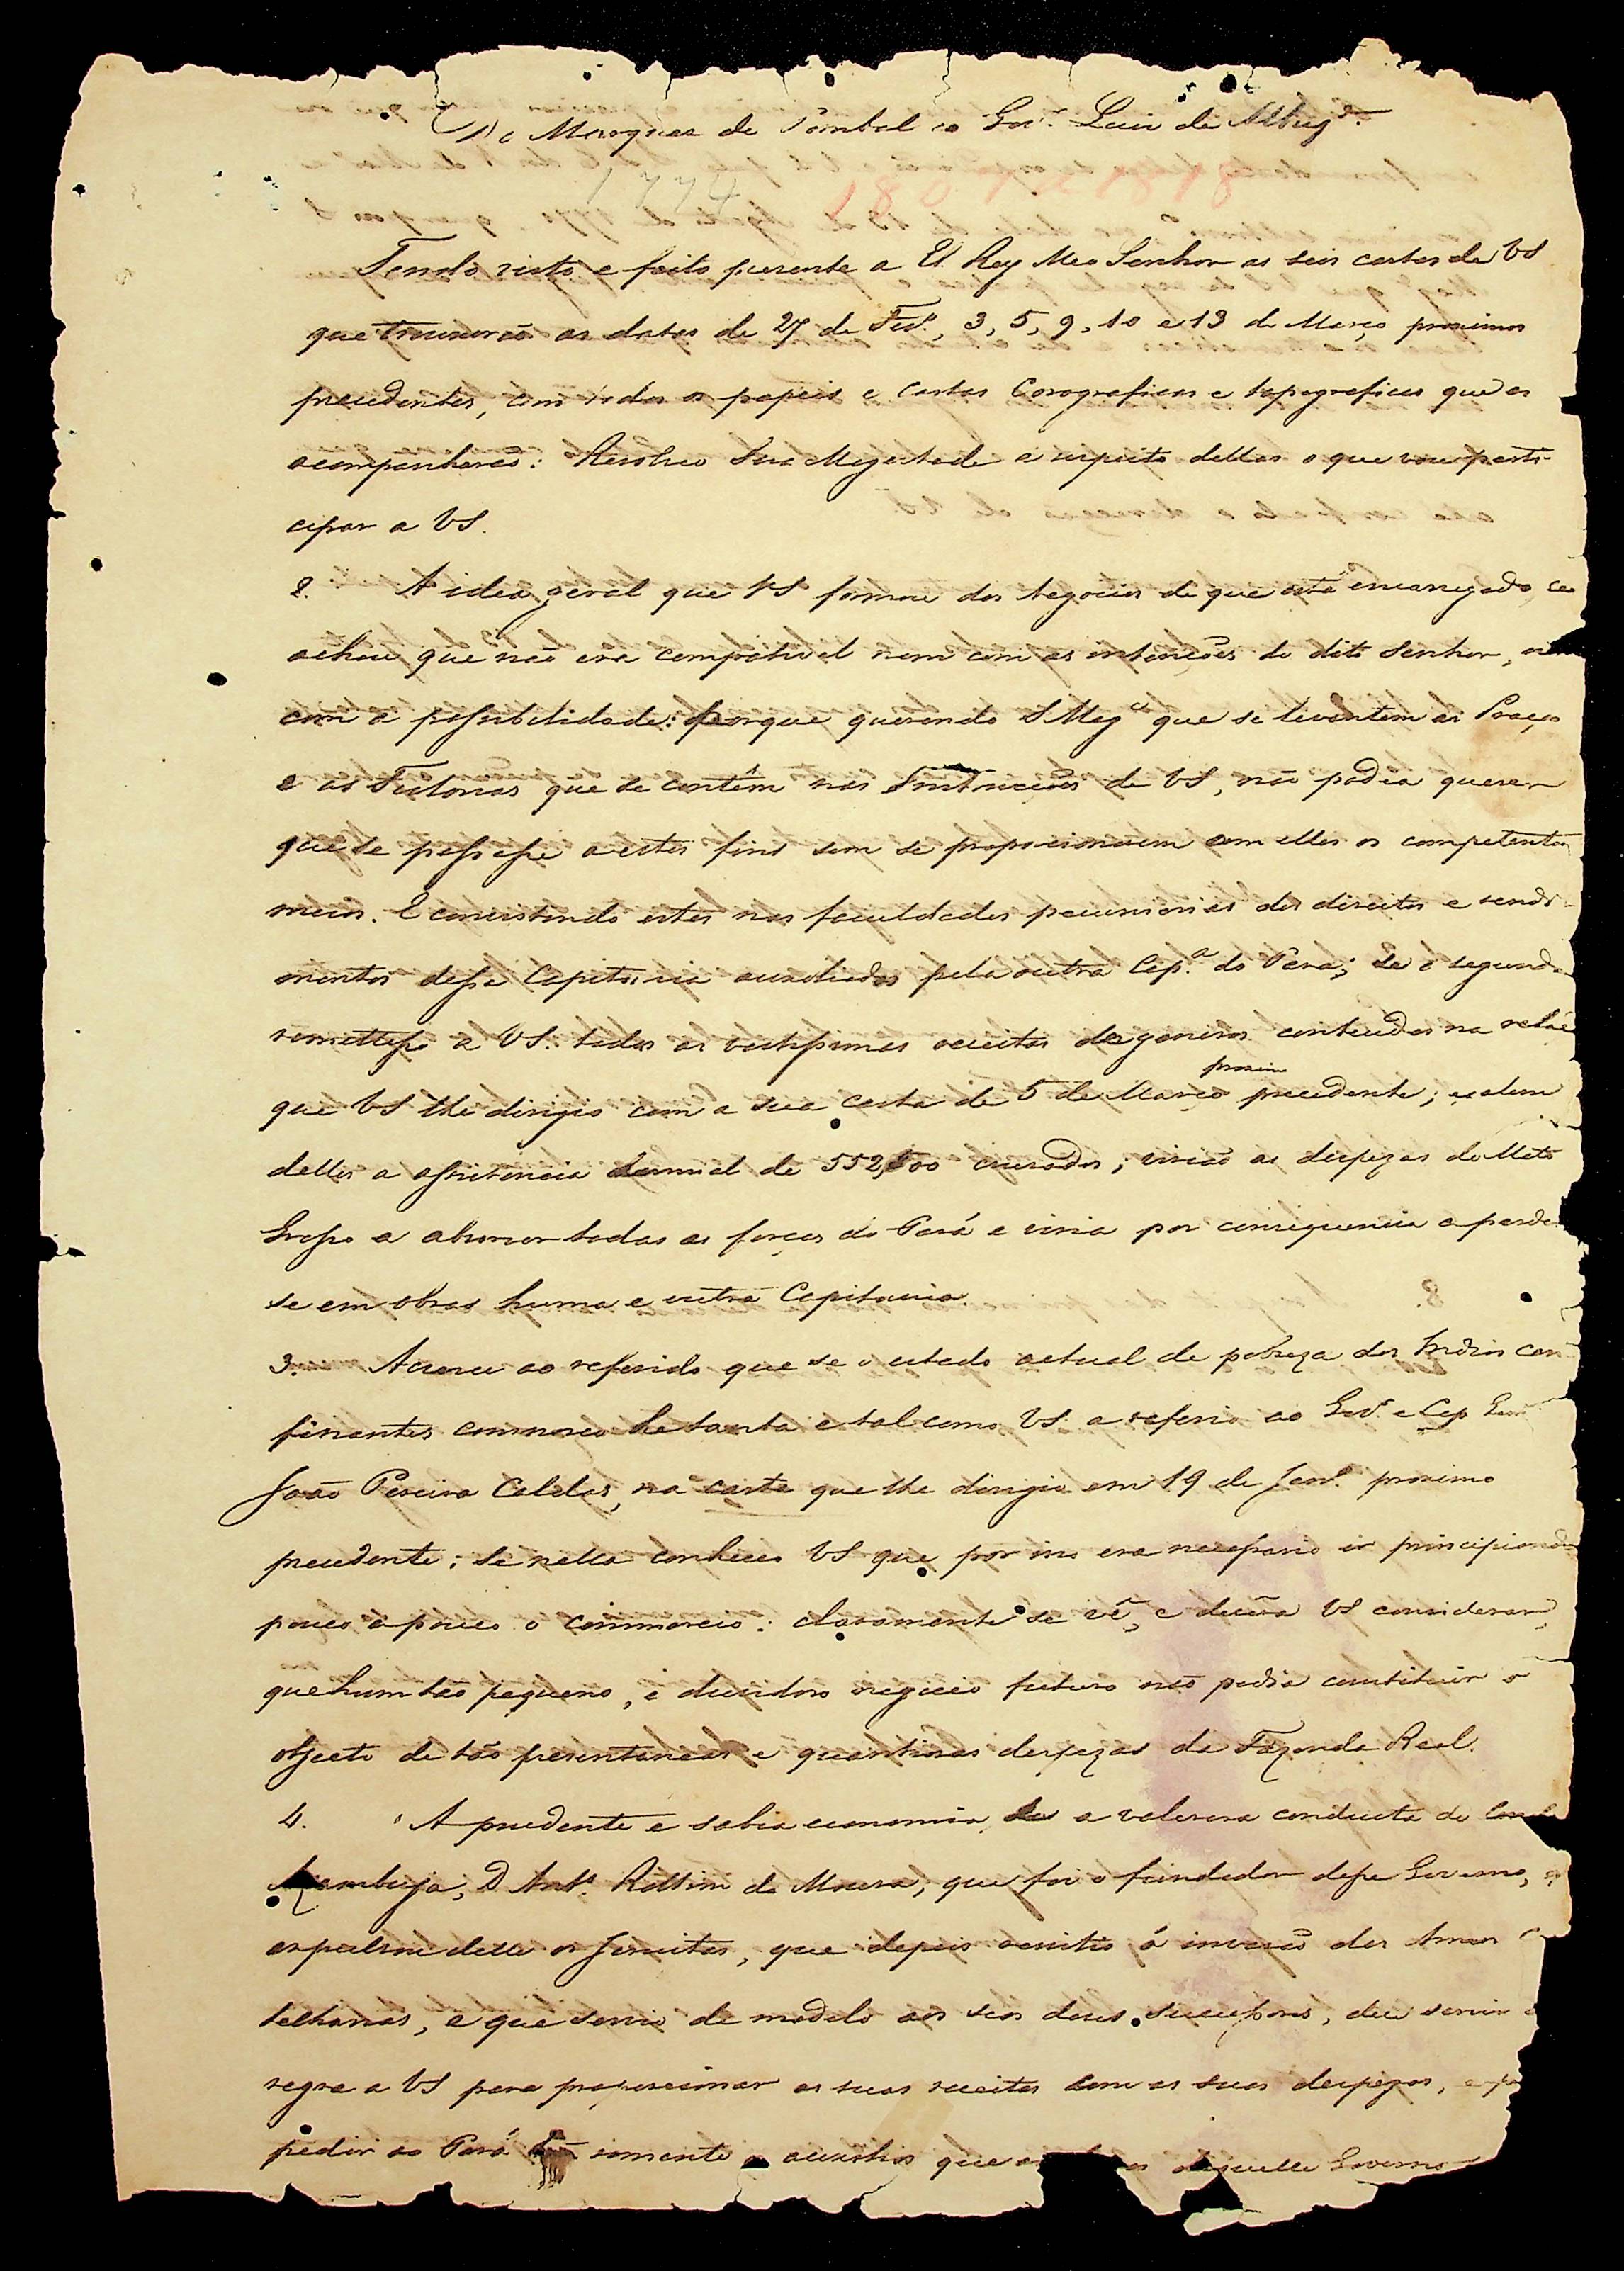 Do Marquez de Pombal ao Gov.or Luiz de Albuq.e
1774
Tendo visto e feito presente a El Rey Meo Senhor as seis cartas de VS
que trouxerão as datas de 27 de Fev.o, 3, 5, 9, 10 e 13 de Março proximos
precedentes, com todos os papeis e cartas Corograficas e topograficas que as
acompanharão: Resolveo Sua Magestade a respeito dellas o que vou parti-
cipar a VS.
2. A idea geral que VS formou dos Negocios de que está encarregado, se
achou que não era compativel nem com as intenções do dito Senhor, nem
com a possibilidade: porque querendo S Mag.e que se levantem as Praças
e as Feitorias que se contêm nas Instrucções de VS, não podia querer
que se passasse a estes fins sem se proporcionarem com elles os competentes
meios. E consistindo estes nas faculdades pecuniarias dos direitos e rendi-
mentos dessa Capitania auxiliados pela outra Cap.a do Pará; se o segundo
remettesse a VS. todas as vastissimas receitas de generos conteudos na relaç
que VS lhe dirigio com a sua carta de 5 de Março proximo precedente; e alem
delles a assistencia annual de 552,500 cruzados; virião as despezas do Mato
Grosso a absorver todas as forças do Pará e viria por consequencia a perder
se em obras huma e outra Capitania.
3. Acresce ao referido que se o estado actual de pobreza dos Indios con
finantes comnosco he tanta e tal como VS. a referio ao Gov.or e Cap Gen.al
João Pereira Caldas, na carta que lhe dirigio em 19 de Jan.o proximo
precedente; se nella conheceo VS que por isso era necessario ir principiando
pouco a pouco o commercio: claramente se vê, e devêra VS considerar,
que hum tão pequeno, e duvidoso negocio futuro não podia constituir o
objecto de tão presentaneas e quantiosas despezas da Fazenda Real.
4. A prudente e sabia economia, e a valerosa conducta do Conde
Azambuja, D Ant.o Rollim de Moura, que foi o fundador desse Governo, q
expulsou delle os Jesuitas, que depois resistio á invasão das Armas Cas
telhanas, e que servio de modelo aos seos dous successores, deve servir d
regra a VS para proporcionar as suas receitas com as suas despezas, e pa
pedir ao Pará somente os auxilios que as daquelle Governo